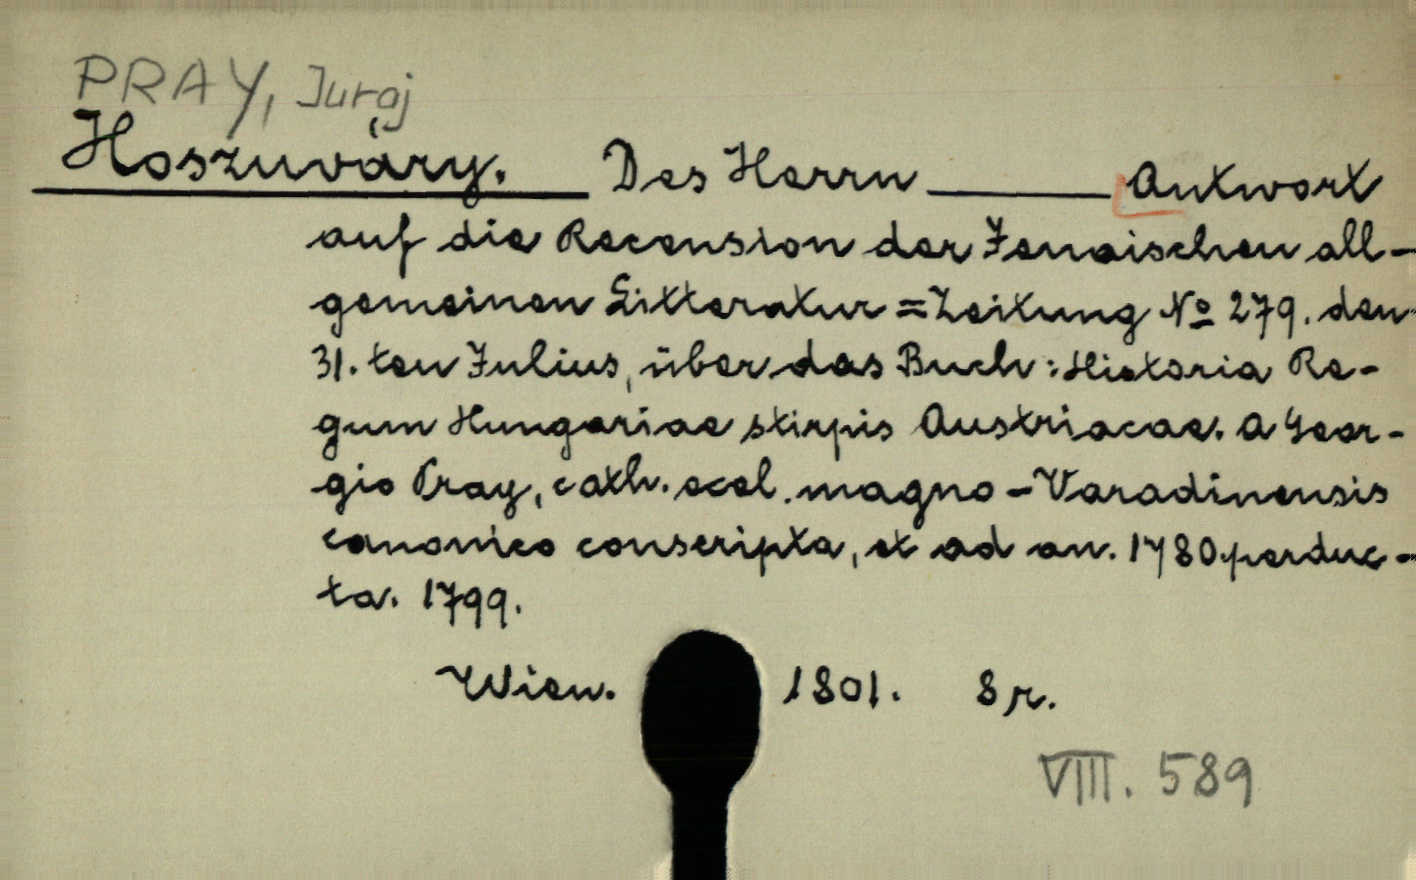 PRAY, Juraj
Hoszuváry. Des Herrn ——— Antwort
auf die Recension der Jenaischen all-
gemeinen Litteratur=Zeitung No 279. den
31. ten Julius, über das Buch: Historia Re-
gum Hungariae stirpis Austriacae. A Geor-
gio Pray, cath. eccl. magno-Varadinensis
canonico conscripta, et ad an. 1780 perduc-
ta. 1799.
Wien. 1801. 8r.
VIII. 589